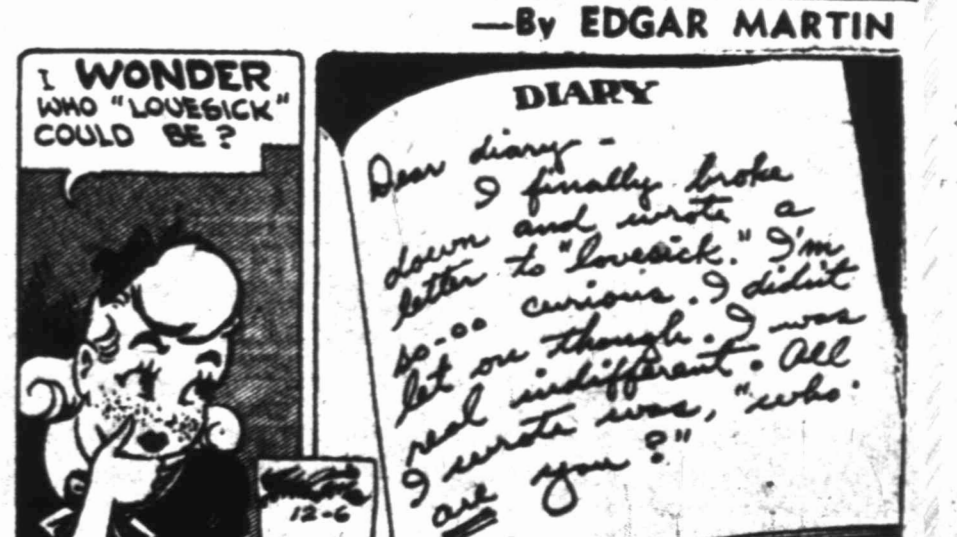 —By EDGAR MARTIN
I WONDER
WHO "LOVESICK"
COULD BE?
DIARY
Dear diary -
I finally broke
down and wrote a
letter to "lovesick." I'm
so-oo curious. I didn't
let on though. I was
real indifferent. All
I wrote was, "who
are you?"
12-6